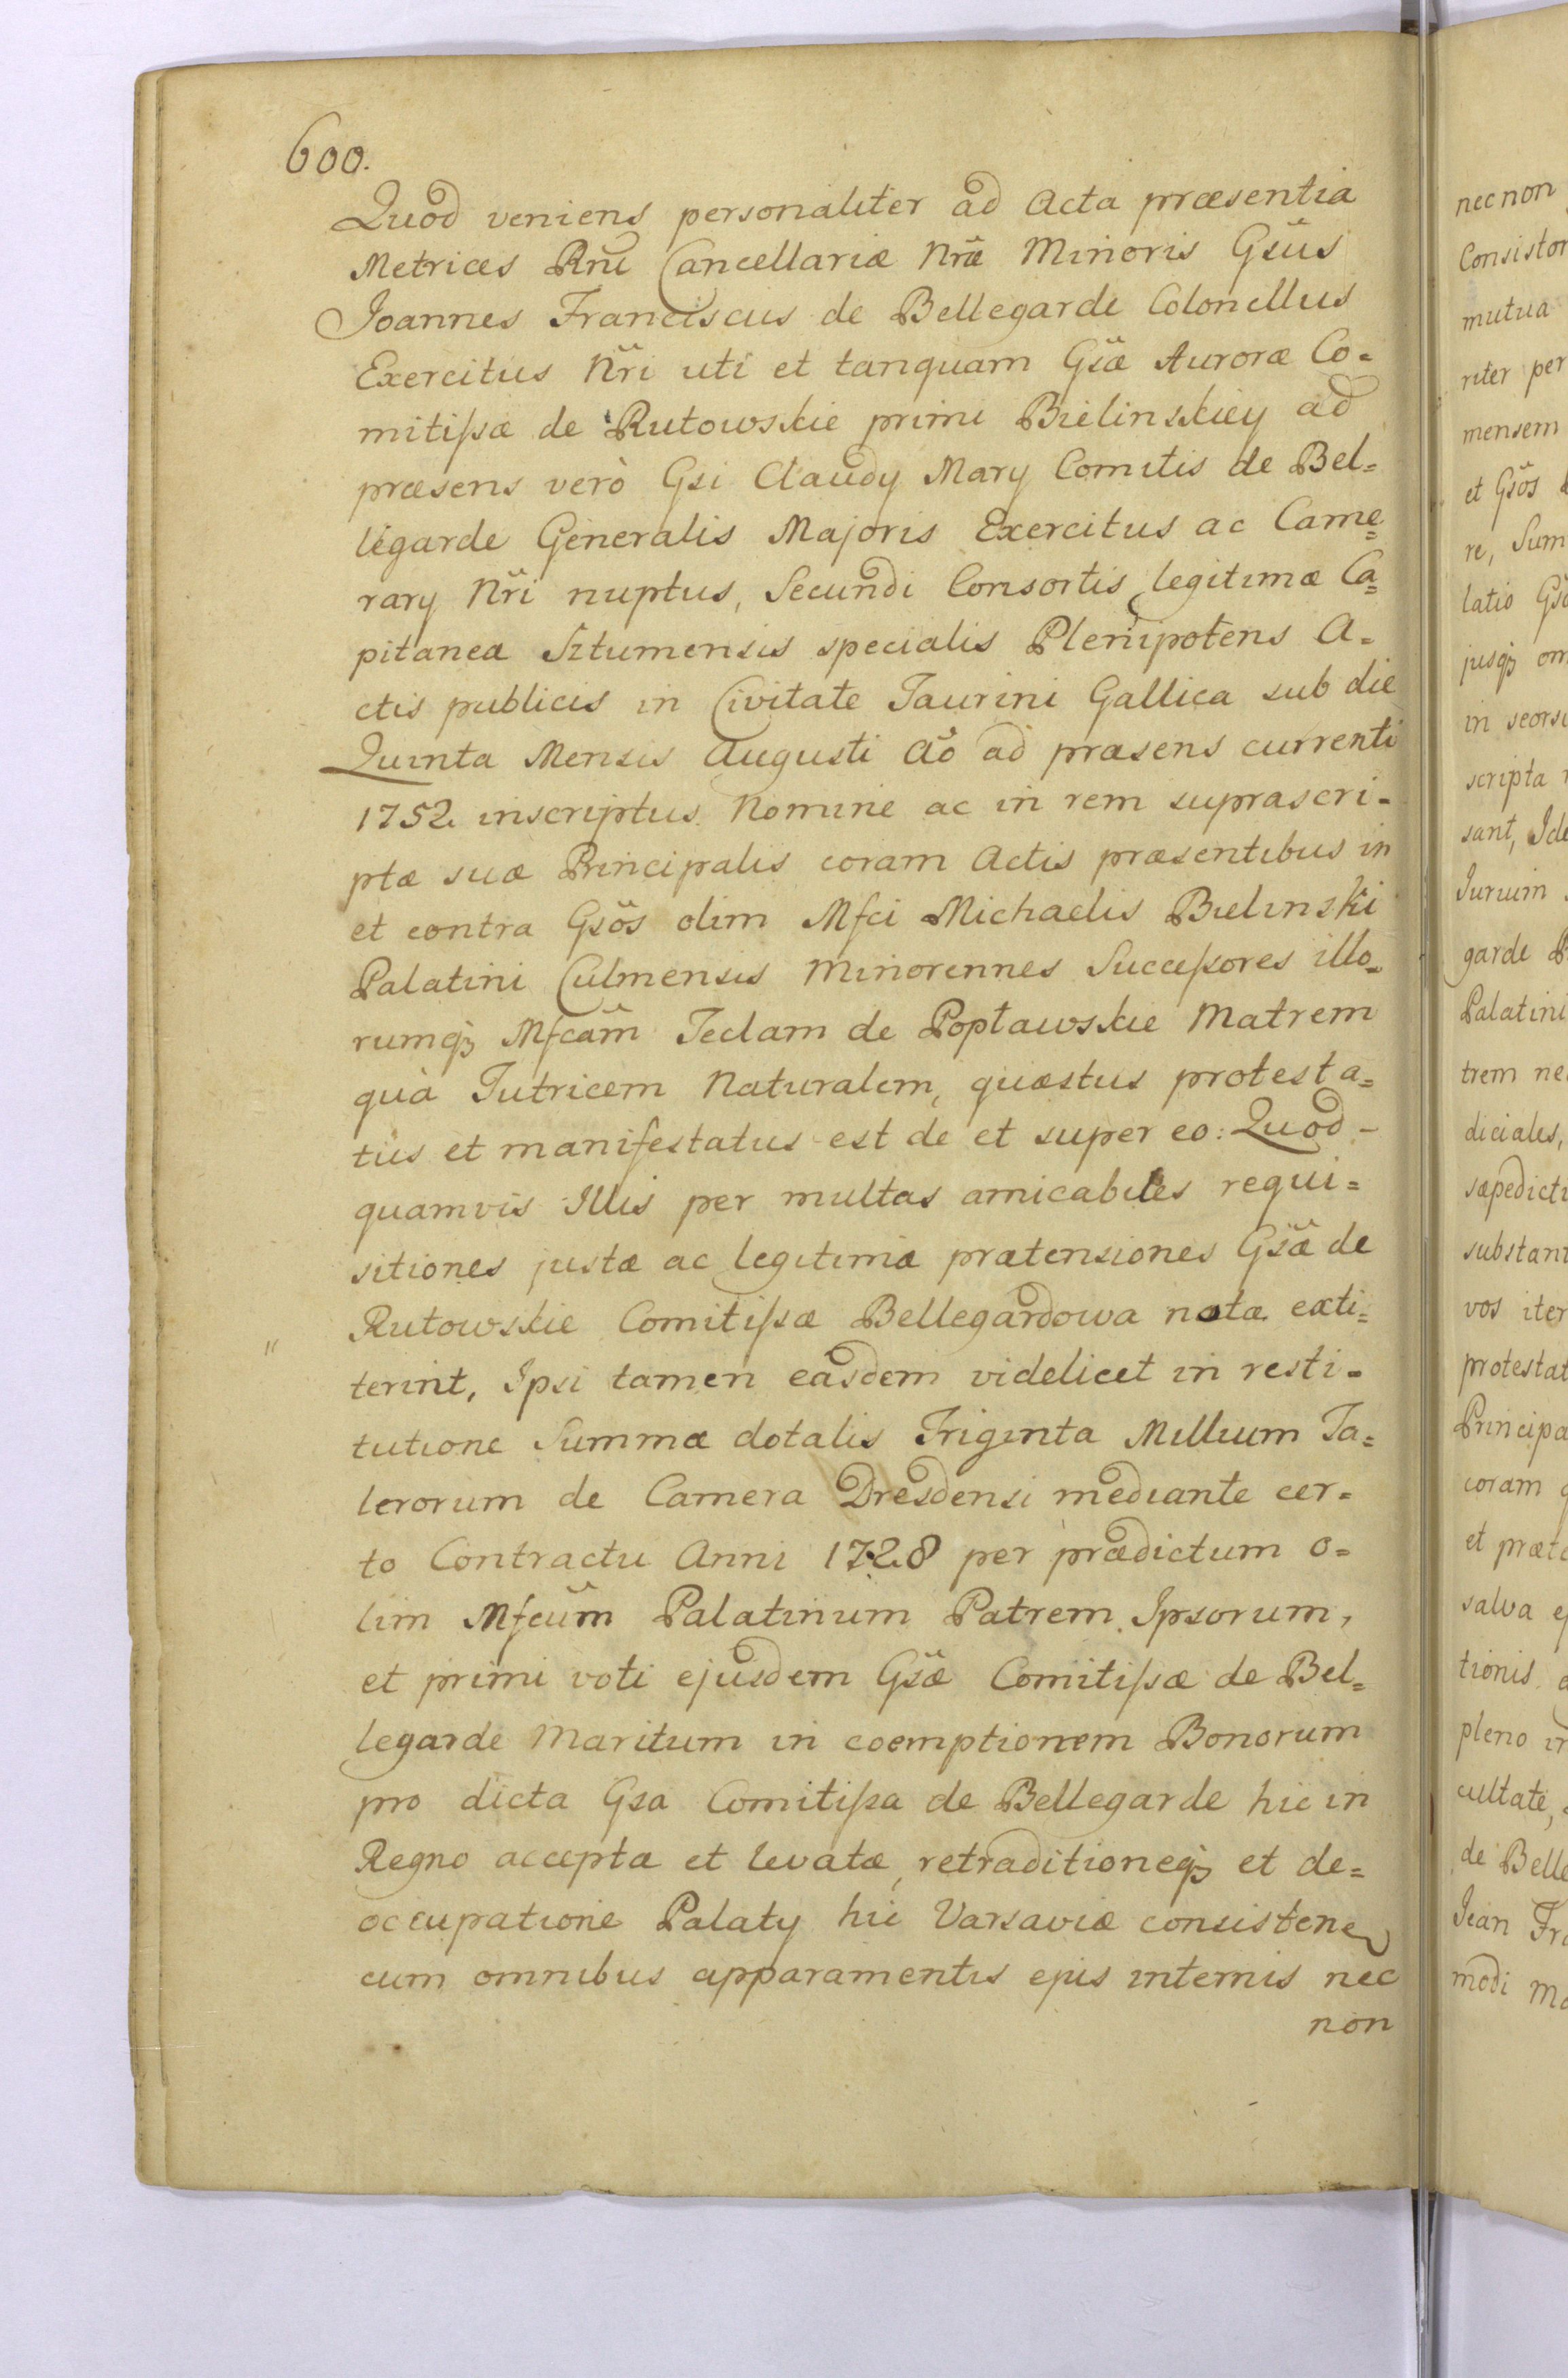 600.
Quod veniens personaliter ad Acta præsentia
Metrices Rñi Cancellariæ Nræ Minoris Gsus
Joannes Franciscus de Bellegarde Colonellus
Exercitus Nri uti et tanquam Gsæ Auroræ Co=
mitißæ de Rutowskie primi Bielinskiey ad
præsens verò Gsi Claudy Mary Comitis de Bel=
legarde Generalis Majoris Exercitus ac Came=
rary Nri nuptus, Secundi Consortis legitimæ Ca=
pitanea Sztumensis specialis Plenipotens A=
ctis publicis in Civitate Taurini Gallica sub die
Quinta Mensis Augusti Aō ad præsens currenti
1752. inscriptus. Nomine ac in rem suprascri=
ptæ suæ Principalis coram Actis præsentibus in
et contra Gsōs olim Mfci Michaelis Bielinski
Palatini Culmensis Minorennes Succeßores illo=
rumqz Mfcam Teclam de Popławskie Matrem
quà Tutricem Naturalem, quæstus protesta=
tus et manifestatus est de et super eo: Quod -
quamvis Illis per multas amicabiles requi=
sitiones justæ ac legitimæ prætensiones Gsæ de
Rutowskie Comitißæ Bellegardowa notæ exti=
"
terint, Ipsi tamen easdem videlicet in resti=
tutione Summæ dotalis Triginta Millium Ta=
lerorum de Camera Dresdensi mediante cer=
to Contractu Anni 1728 per prædictum o=
lim Mfcum Palatinum Patrem Ipsorum,
et primi voti ejusdem Gsæ Comitißæ de Bel=
legarde Maritum in coemptionem Bonorum
pro dicta Gsa Comitißa de Bellegarde hic in
Regno acceptæ et levatæ, retraditioneqz et de=
occupatione Palaty hic Varsaviæ consisten
cum omnibus apparamentis ejus internis nec
non
necnon
Consistor
mutua
riter per
mensem
et Gsōs
re, Sum
latio
jusqz om
in seorsi
scripta
sant, Ide
Jurium
garde
Palatini
trem ne
diciales,
sæpedicti
substant
vos iter
protestat
Principa
coram
et præte
salva
tionis
pleno in
cultate,
de Belle
Jean Fra
modi Ma